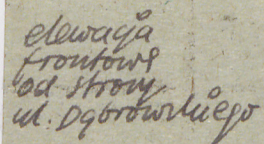 elewacja
frontowa
od strony
ul. Dąbrowskiego